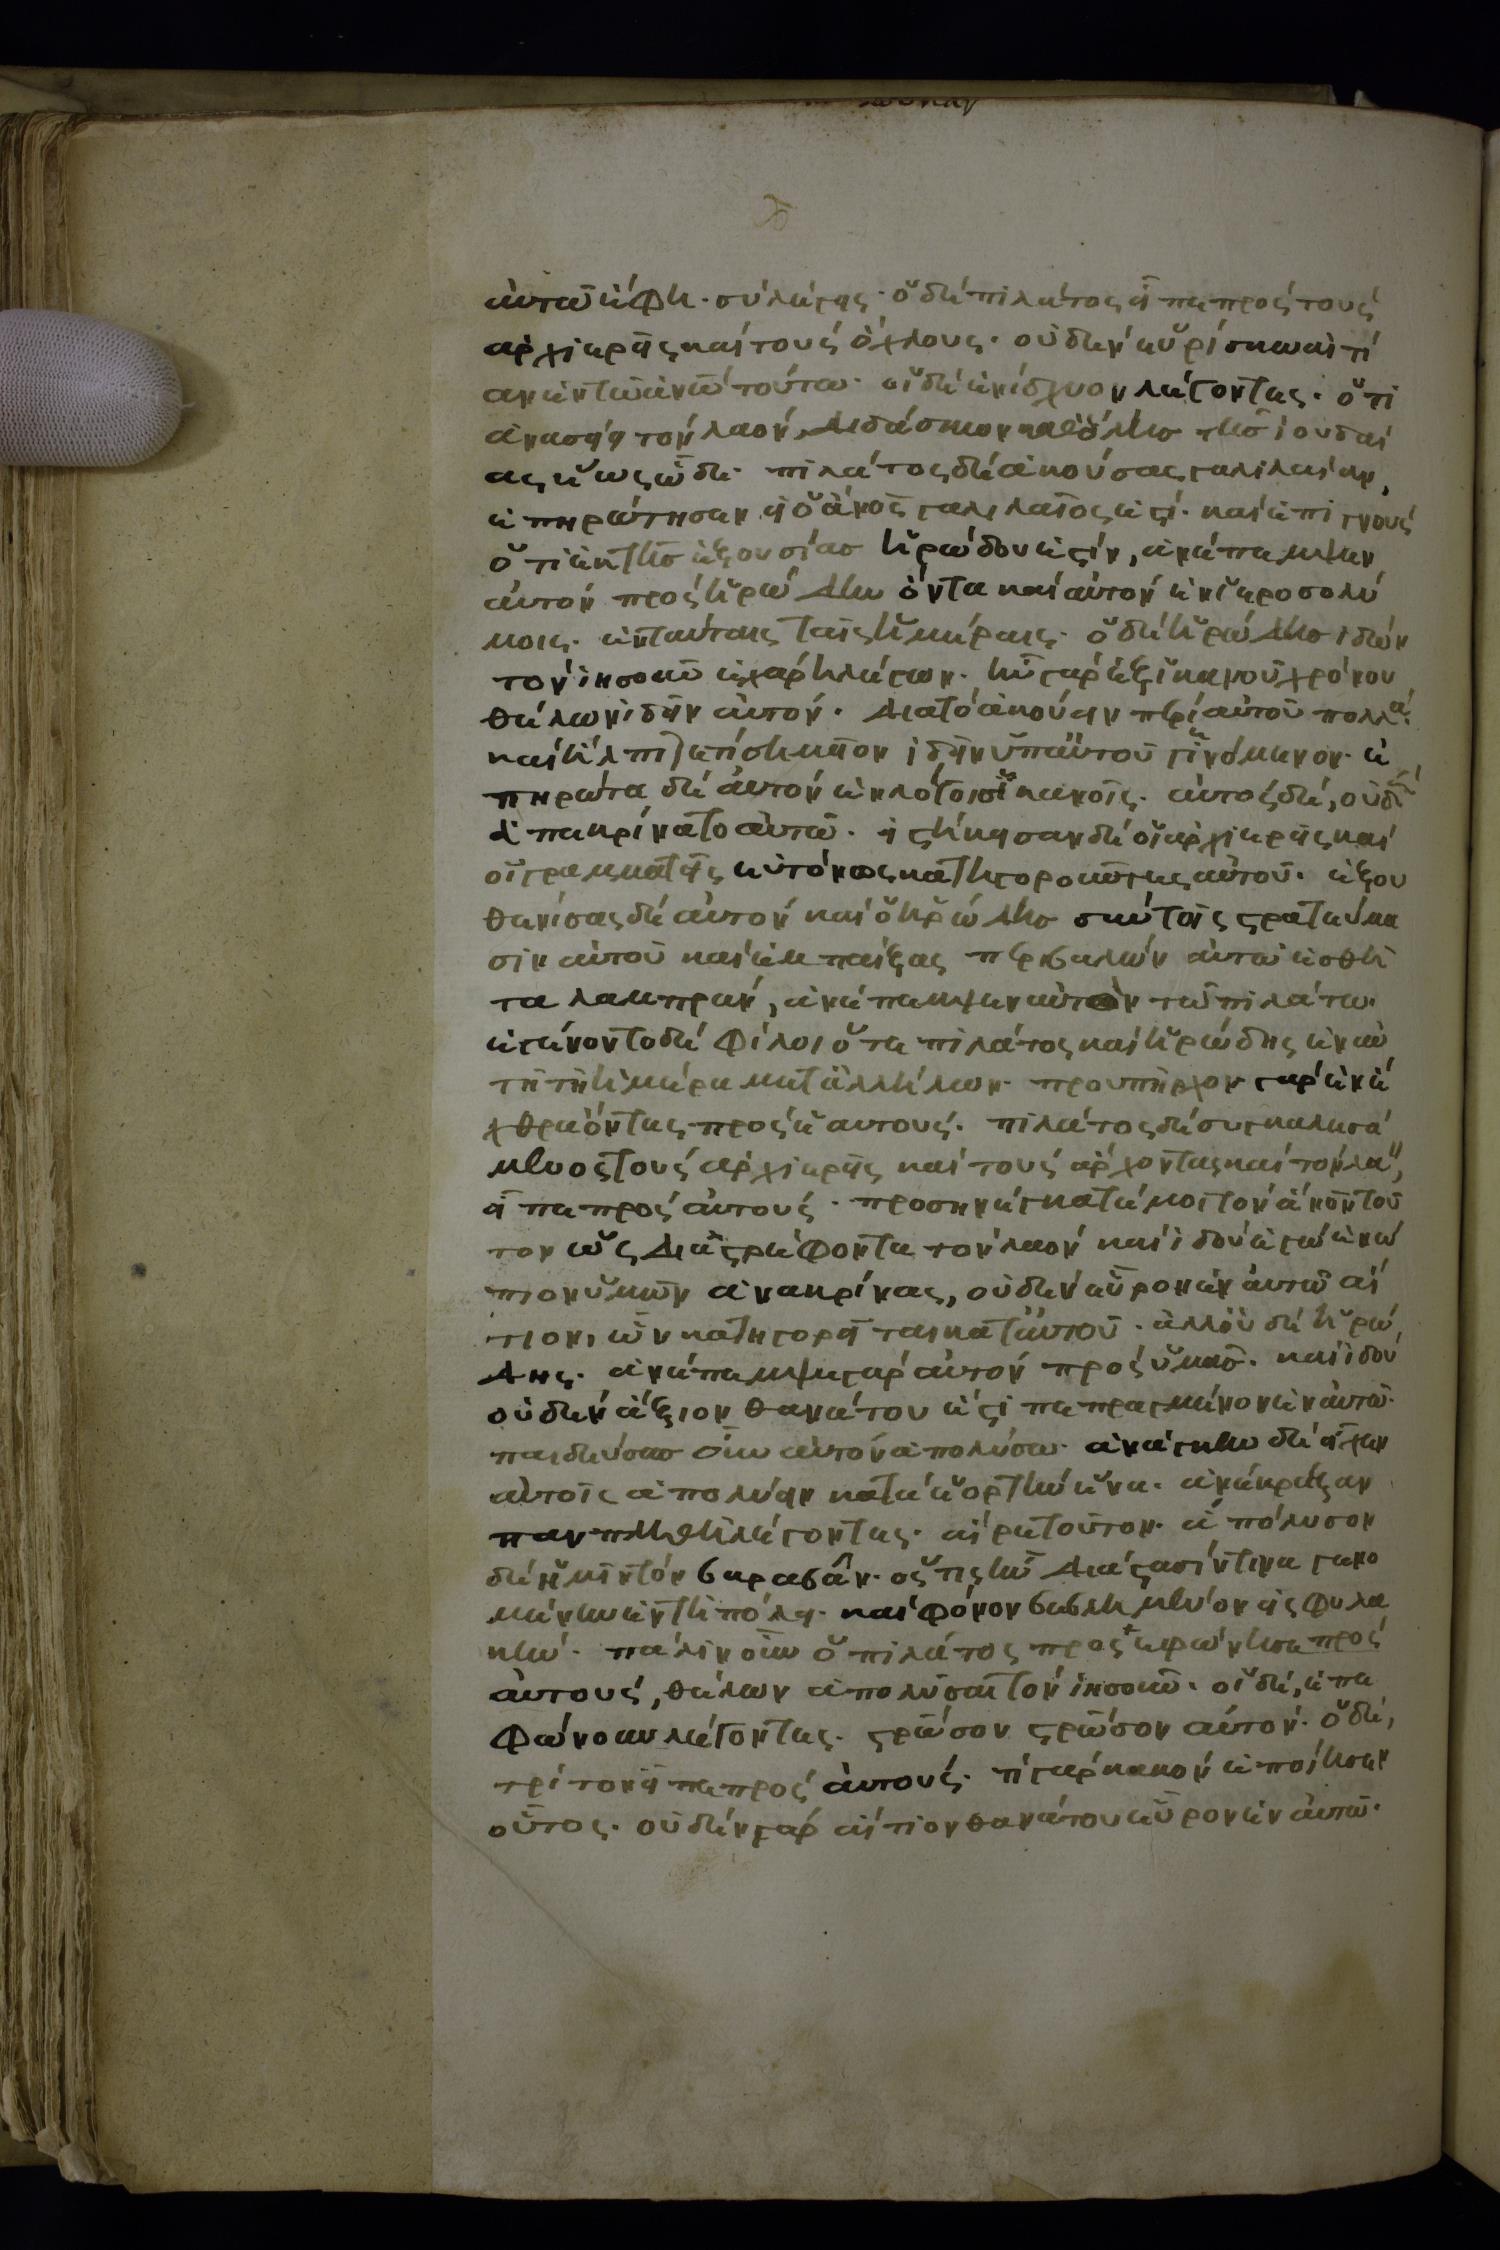 αὐτῶ ἔφη· σὺ λέγεις· ὁ δὲ πιλάτος εἶπε πρὸς τοὺς
ἀρχιερεῖς καὶ τοὺς ὄχλους· οὐδὲν εὑρίσκω αἴτι
ον ἐν τῶ ἀνω τούτω· οἱ δὲ ἐνίσχυον λέγοντες· ὅτι
ἀνασείει τὸν λαόν, διδάσκων καθόλης τῆς ἰουδαί
ας ἕως ὧδε· πιλάτος δὲ ἀκούσας γαλιλαίαν,
ἐπηρώτησεν εἰ ὁ ἄνος γαλιλαῖος ἐστί· καὶ ἐπιγνοὺς
ὅτι ἐκ τῆς ἐξουσίας ἡρώδου ἐστίν, ἀνέπεμψεν
αὐτὸν πρὸς ἡρώδην ὄντα καὶ αὐτὸν ἐν ἱεροσολύ
μοις· ἐν ταύταις ταῖς ἡμέραις· ὁ δὲ ἡρώδης ἰδὼν
τὸν ἰησοῦν ἐχάρη λίαν· ἦν γὰρ ἐξ ἱκανοῦ χρόνου
θέλων ἰδεῖν αὐτόν· διατὸ ἀκούειν περὶ αὐτοῦ πολλά·
καὶ ἤλπιζέ τι σημεῖον ἰδεῖν ὑπ αὐτοῦ γινόμενον· ἐ
πηρώτα δὲ αὐτὸν ἐν λόγοις ἱκανοῖς· αὐτὸς δὲ, οὐδὲν
ἀπεκρίνατο αὐτῶ· εἱστήκησαν δὲ οἱ ἀρχιερεῖς καὶ
οἱ γραμματεῖς εὐτόνως κατηγοροῦντες αὐτοῦ· ἐξου
θενίσας δὲ αὐτὸν καὶ ὁ ἡρώδης σὺν τοῖς στρατεύμα
σιν αὐτοῦ καὶ ἐμπαίξας περιβαλὼν αὐτὸν ἐσθῆ
τα λαμπράν, ἀνέπεμψεν αὐτὸν τῶ πιλάτω·
ἐγένοντο δὲ φίλοι ὅ τε πιλάτος καὶ ἡρώδης ἐν αὐ
τῆ τῆ ἡμέρα μετ ἀλλήλων· προυπῆρχον γὰρ ἐν ἔ
χθρα ὄντες πρὸς ἑαυτούς· πιλάτος δὲ συγκαλεσά
μενος τοὺς ἀρχιερεῖς καὶ τοὺς ἄρχοντας καὶ τὸν λαὸν,
εἶπε πρὸς αὐτούς· προσηνέγκατέ μοι τὸν ἄνον τοῦ
τον ὡς διαστρέφοντα τὸν λαὸν καὶ ἰδοὺ ἐγὼ ἐνώ
πιον ὑμῶν ἀνακρίνας, οὐδὲν εὗρον ἐν αὐτῶ αἴ
τιον, ὧν κατηγορεῖται κατ αὐτοῦ· ἀλλ οὐδὲ ἡρώ
δης· ἀνέπεμψε γὰρ αὐτὸν πρὸς ὑμᾶς· καὶ ἰδοὺ
οὐδὲν ἄξιον θανάτου ἐστὶ πεπραγμένον ἐν αὐτῶ·
παιδεύσας οὖν αὐτὸν ἀπολύσω· ἀνάγκην δὲ εἶχεν
αὐτοῖς ἀπολύειν κατὰ ἑορτὴν ἕνα· ἀνέκραξαν
παμπληθεὶ λέγοντες· αἶρε τοῦτον· ἀπόλυσον
δὲ ἡμῖν τὸν βαραβᾶν· ὅστις ἦν διὰ στάσίν τινα γενο
μένην ἐν τῆ πόλει· καὶ φόνον βεβλημένον εἰς φυλα
κήν· πάλιν οὖν ὁ πιλάτος προσεφώνησε πρὸς
αὐτοὺς, θέλων ἀπολῦσαι τὸν ἰησοῦν· οἱ δὲ, ἐπε
φώνουν λέγοντες· στρωσον στρωσον αὐτόν· ὁ δὲ,
τρίτον εἶπε πρὸς αὐτούς· τί γὰρ κακὸν ἐποίησεν
οὗτος· οὐδὲν γὰρ αἴτιον θανάτου εὗρον ἐν αὐτῶ·